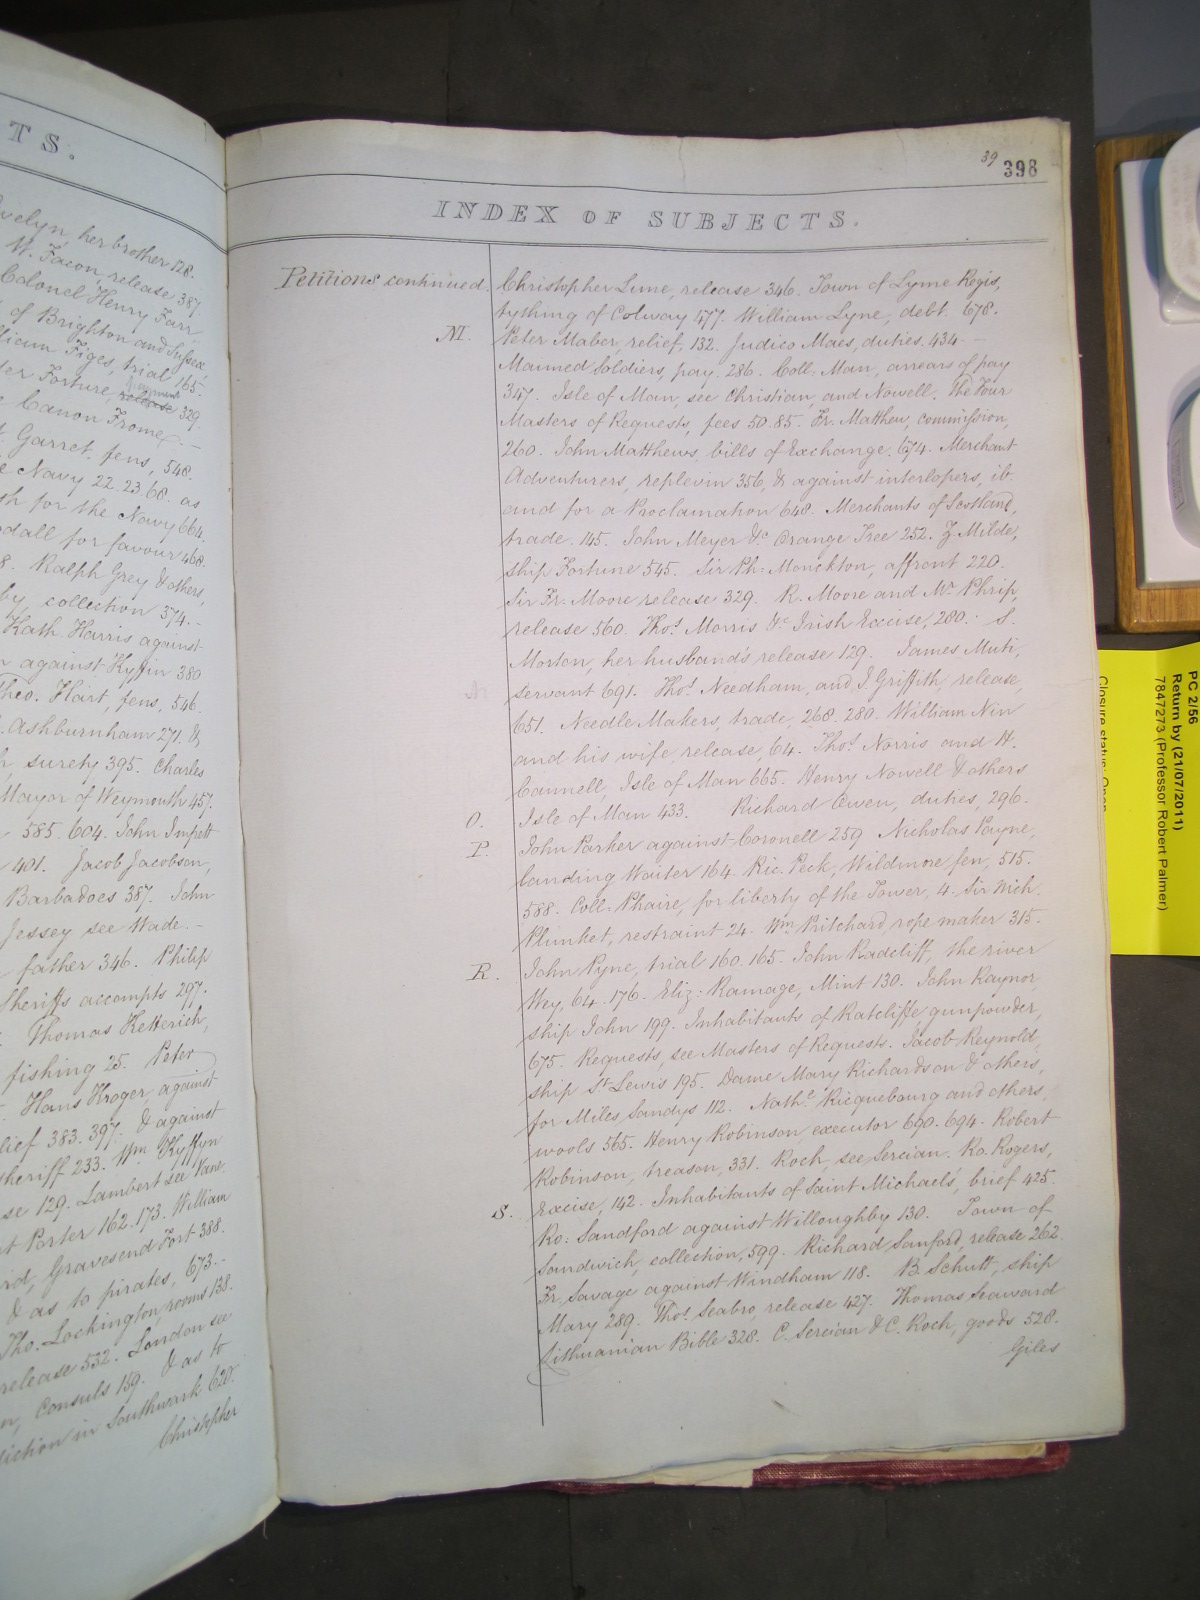 TS.
velyn, her brother 128.
W. Facon, release 387.
Colonel Henry Farr
of Brighton and Sussex,
liam Figes, trial 165.
payment
ter Forture, release 329.
Canon Frome. -
Garret, fens, 548.
e Navy 22. 23. 68. as
sh for the Navy 664.
odall for favour 468.
8. Ralph Grey & others,
by collection 374. -
Kath. Harris against
n against Kyffin 380
Theo. Hart, fens, 546.
Ashburnham 271. &
surety 395. Charles
Mayor of Weymouth 457.
585. 604. John Impett
401. Jacob Jacobson,
Barbadoes 387. John
Jessey see Wade. -
father 346. Philip
Sheriffs accompts 297.
Thomas Ketterich,
fishing 25. Peter
Hans Kroger, against
lief 383. 397. & against
heriff 233. Wm. Kyffyn
se 129. Lambert see Vane.
t Porter 162. 173. William
rd, Gravesend Fort 388.
& as to pirates, 673. -
Tho. Lockington, rooms 138.
release 532. London see
n, Consuls 159. & as to
diction in Southwark 620.
Christopher
39 398
INDEX OF SUBJECTS.
Petitions continued. Christopher Lime, release 346. Town of Lyme Regis,
tything of Colway 477. William Lyne, debt. 678.
M. Peter Maber, relief, 132. Judico Maes, duties. 434 -
Maimed Soldiers, pay. 286. Coll: Man, arrears of pay
347. Isle of Man, see Christian, and Nowell. The Four
Masters of Requests, fees 50. 85. Fr. Matthew, commission,
260. John Matthews, bills of Exchange. 674. Merchant
Adventurers, replevin 356, & against interlopers, ib.
and for a Proclamation 648. Merchants of Scotland,
trade. 145. John Meyer &c Orange Tree 252. Z. Milde,
ship Fortune 545. Sir Ph: Monckton, affront 220.
Sir Fr. Moore release 329. R. Moore and Mr Phrip,
release 560. Thos. Morris &c Irish Excise, 280. S.
Morton, her husband's release 129. James Muti,
N. servant 691. Thos. Needham, and J. Griffith, release,
651. Needle Makers, trade, 268. 280. William Nin
and his wife, release, 64. Thos. Norris and H.
Cannell, Isle of Man 665. Henry Nowell & others
O. Isle of Man 433. Richard Owen, duties, 296.
P. John Parker against Coronell 259 Nicholas Payne,
landing Waiter 164. Ric. Peck, Wildmore fen, 515.
588. Coll: Phaire, for liberty of the Tower, 4. Sir Nich.
Plunket, restraint 24. Wm Pritchard rope maker 315.
R. John Pyne, trial 160. 165. John Radcliff, the river
Wey, 64. 176. Eliz: Ramage, Mint 130. John Raynor,
ship John 199. Inhabitants of Ratcliffe gunpowder,
675. Requests, see Masters of Requests. Jacob Reynold,
ship St Lewis 195. Dame Mary Richardson & others,
for Miles Sandys 112. Nathl Ricquebourg and others,
wools 565. Henry Robinson, executor 690. 694. Robert
Robinson, treason, 331. Roch, see Sercian. Ro. Rogers,
Excise, 142. Inhabitants of Saint Michaels', brief 425.
S. Ro: Sandford against Willoughby 130. Town of
Sandwich, collection, 599. Richard Sanford, release 262.
Fr. Savage against Windham 118. B. Schutt, ship
Mary 289. Thos. Seabro, release 427. Thomas Seaward
Lithuanian Bible 328. C. Sercian & C. Roch, goods 528.
Giles
PC 2/56
Return by (21/07/2011)
7847273 (Professor Robert Palmer)
Closure status: Open